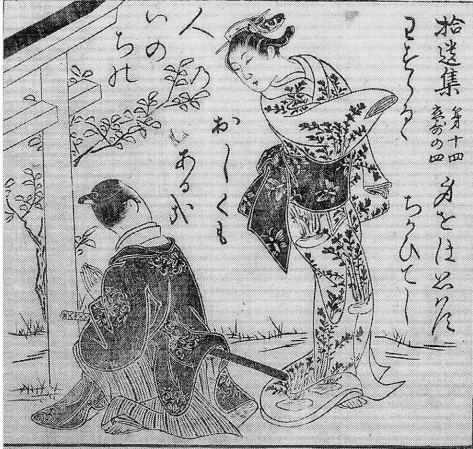 拾遺集
第十四
恋の四
わすらるゝ
身をは思はす
ちかひてし
人の
いの
ちの
おしくも
ある哉